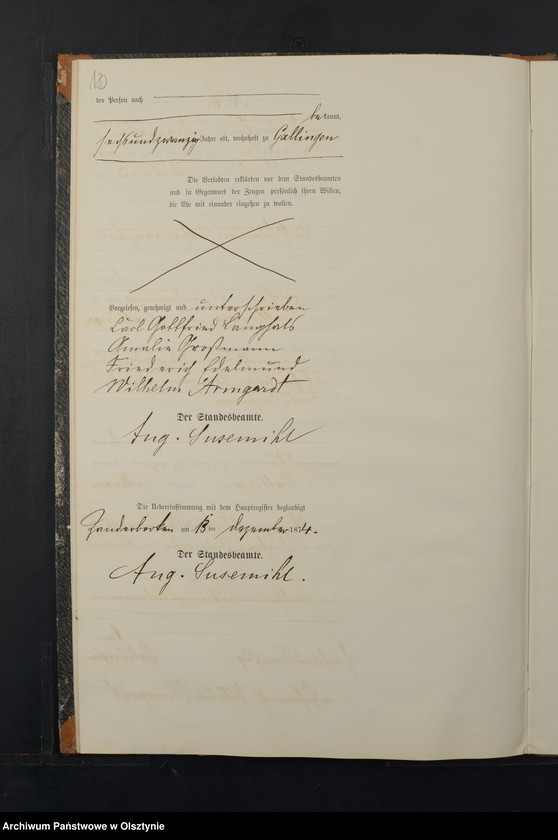 der Person nach
bekannt,
sechsundzwanzig Jahre alt, wohnhaft zu Gallingen
Die Verlobten erklärten vor dem Standesbeamten
und in Gegenwart der Zeugen persönlich ihren Willen,
die Ehe mit einander eingehen zu wollen.
Vorgelesen, genehmigt und unterschrieben
Carl Gottfried Langhals
Amalie Großmann
Friederich Edelmund
Wilhelm Armgardt
Der Standesbeamte.
Aug. Susemihl
Die Uebereinstimmung mit dem Hauptregister beglaubigt
am ten Dezember 1874.
Der Standesbeamte.
Aug. Susemihl.
Archiwum Państwowe w Olsztynie